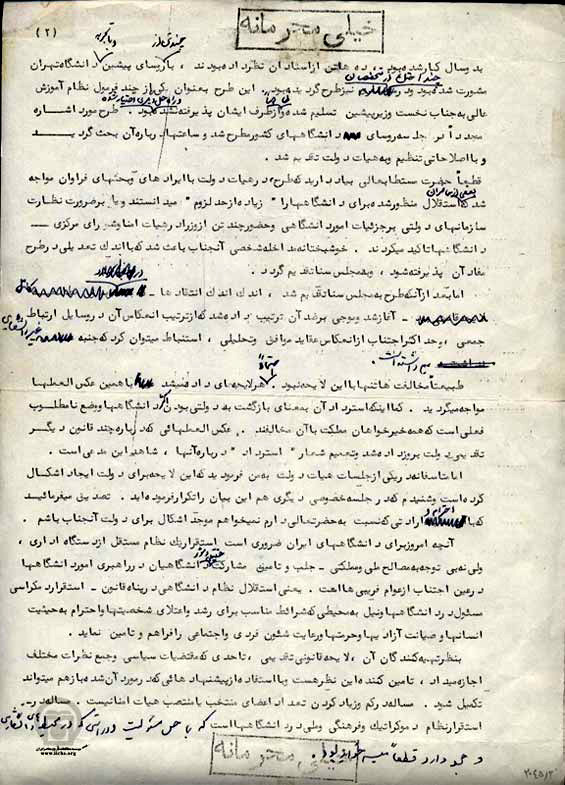 خیلی محرمانه
(۲)
بد و سال کار شده بود ، ده ها تن از استادان نظر داده بودند ، با روسای پیشین دانشگاه تهران
مشورت شده بود و در نیز طرح گردیده بود . این طرح بعنوان یکی از چند فرمول نظام آموزش
عالی به جناب نخست وزیر پیشین تسلیم شده و از طرف ایشان پذیرفته شده بود . طرح مورد اشاره
مجدداً در جلسه روسای دانشگاههای کشور مطرح شد و ساعتها درباره آن بحث گردید
و با اصلاحاتی تنظیم و به هیات دولت تقدیم شد .
قطعاً حضرت مستطابعالی بیاد دارید که طرح ، در هیات دولت با ایرادهای و بحثهای فراوان مواجه
شد که استقلال منظور شده برای دانشگاهها را " زیاده از حد لزوم " میدانستند و یا بر ضرورت نظارت
سازمانهای دولتی بر جزئیات امور دانشگاهی و حضور چند تن از وزرا در هیات امنا و شورای مرکزی
دانشگاهها تاکید میکردند . خوشبختانه مداخله شخصی آنجناب باعث شد که با اندک تعدیلی در طرح
مفاد آن پذیرفته شود ، و به مجلس سنا تقدیم گردد .
اما بعد از آنکه طرح به مجلس سنا تقدیم شد ، اندک اندک انتقادها -
- آغاز شد و موجی بر ضد آن ترتیب داده شد که از ترتیب انعکاس آن در وسایل ارتباط
جمعی ، و حد اکثر اجتناب از انعکاس عقاید موافق و تحلیلی ، استنباط میتوان کرد که جنبه
هم داشته است .
طبیعتاً مخالفت ها تنها با این لایحه نبود هر لایحه ای داده میشد با همین عکس العملها
مواجه میگردید . کما اینکه استرداد آن بمعنای بازگشت به دولتی بودن دانشگاهها و وضع نامطلوب
فعلی است که همه خیرخواهان مملکت با آن مخالفند . عکس العملهائی که درباره چند قانون دیگر
تقدیمی دولت بروز داده شد و تعمیم شعار " استرداد " درباره آنها ، شاهد این مدعی است .
اما متاسفانه در یکی از جلسات هیات دولت به من فرمودید که این لایحه برای دولت ایجاد اشکال
کرده است و شنیدم که در جلسه خصوصی دیگری هم این بیان را تکرار فرموده اید . تصدیق میفرمائید
که با احترام و ارادتی که نسبت به حضرتعالی دارم نمیخواهم موجد اشکال برای دولت آنجناب باشم .
آنچه امروز برای دانشگاههای ایران ضروری است استقرار یک نظام مستقل از دستگاه اداری ،
ولی نه بی توجه به مصالح ملی و مملکتی - جلب و تامین مشارکت دانشگاهیان در راهبری امور دانشگاهها
در عین اجتناب از عوام فریبی ها است . یعنی استقلال نظام دانشگاهی در پناه قانون - استقرار دمکراسی
مسئول در دانشگاهها و نیل به محیطی که شرائط مناسب برای رشد و اعتلای شخصیتها و احترام به حیثیت
انسانها و صیانت آزادیها و حرمتها و رعایت شئون فردی و اجتماعی را فراهم و تامین نماید .
بنظر تهیه کنندگان آن ، لایحه قانونی تقدیمی ، تا حدی که مقتضیات سیاسی و جمع نظرات مختلف
اجازه میداد ، تامین کننده این نظر هست و با استفاده از پیشنهادهائی که در مورد آن شده باز هم میتواند
تکمیل شود . مساله رکم و زیاد کردن تعداد اعضای منتخب یا منتصب هیات امنا نیست . مساله در
استقرار نظام دموکراتیک و فرهنگی و ملی در دانشگاهها است که با حس مسئولیت و درایتی که در محیط های دانشگاهی
وجود دارد قطعاً میسر خواهد بود .
خیلی محرمانه
www.iichs.org